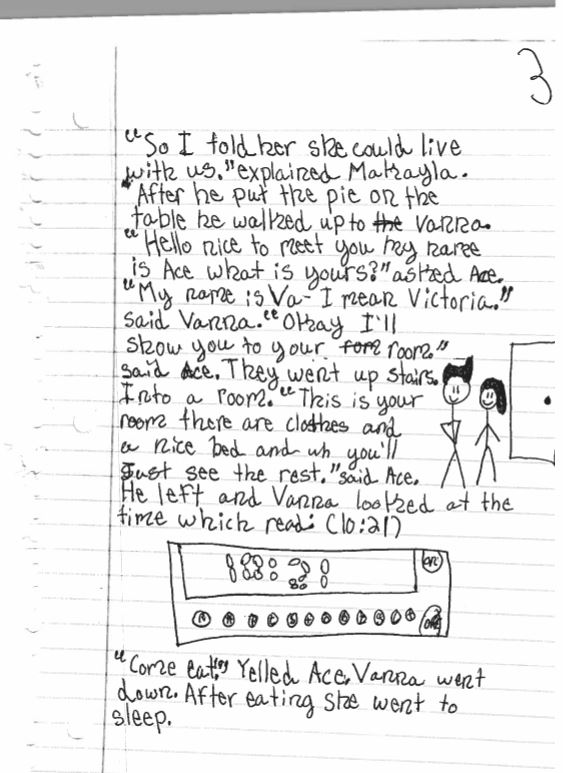 3
"So I told her she could live
with us." explained Makayla.
After he put the pie on the
table he walked up to the Vanna.
"Hello nice to meet you my name
is Ace what is yours?" asked Ace.
"My name is Va- I mean Victoria."
said Vanna. "Okay I'll
show you to your room."
said Ace. They went up stairs.
Into a room. "This is your
room there are clothes and
a nice bed and uh you'll
Just see the rest." said Ace.
He left and Vanna looked at the
time which read: (10:21)
"Come eat." Yelled Ace. Vanna went
down. After eating she went to
sleep.